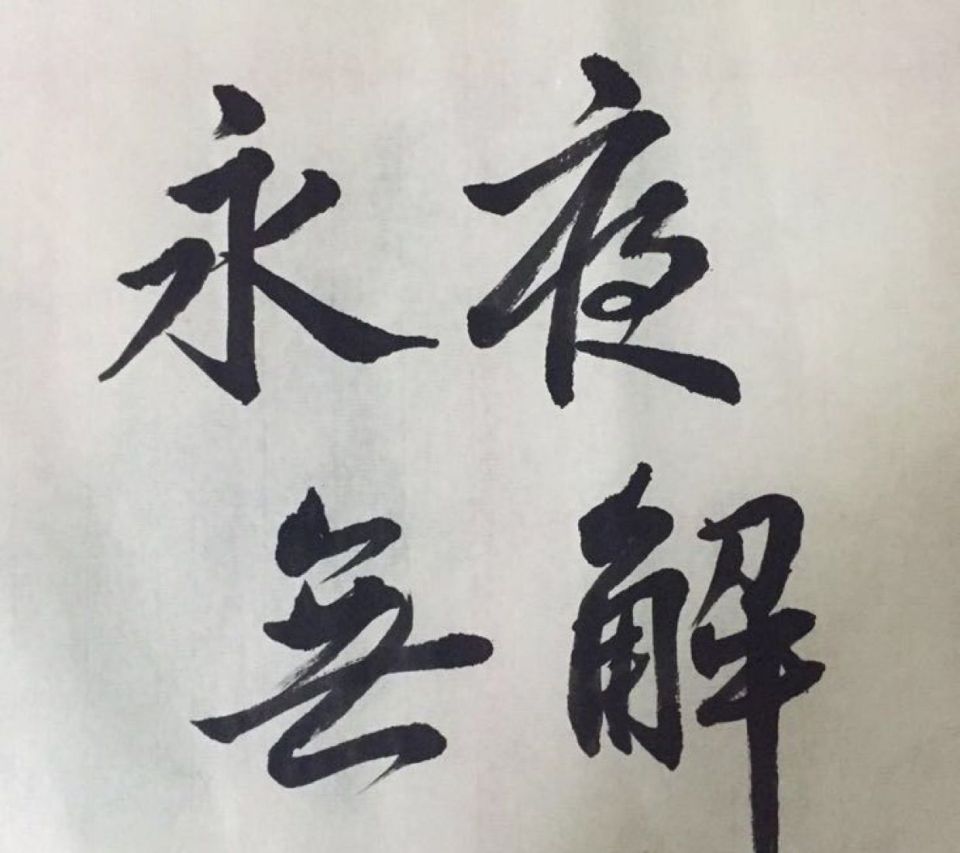 永夜
無解